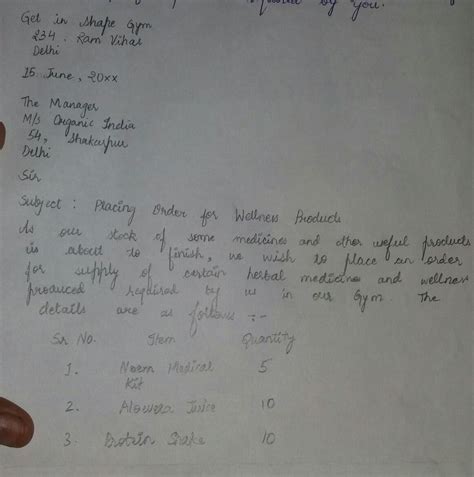 required by you.
Get in Shape Gym
234. Ram Vihar
Delhi
15 June, 20xx
The Manager
M/s Organic India
54, Shakarpur
Delhi
Sir
Subject : Placing Order for Wellness Products
As our stock of some medicines and other useful products
is about to finish, we wish to place an order
for supply of certain herbal medicines and wellness
produced required by us in our Gym. The
details are as follows :-
Sr No. Item Quantity
1. Norm Medical 5
Kit
2. Alowera Juice 10
3. Protein Shake 10